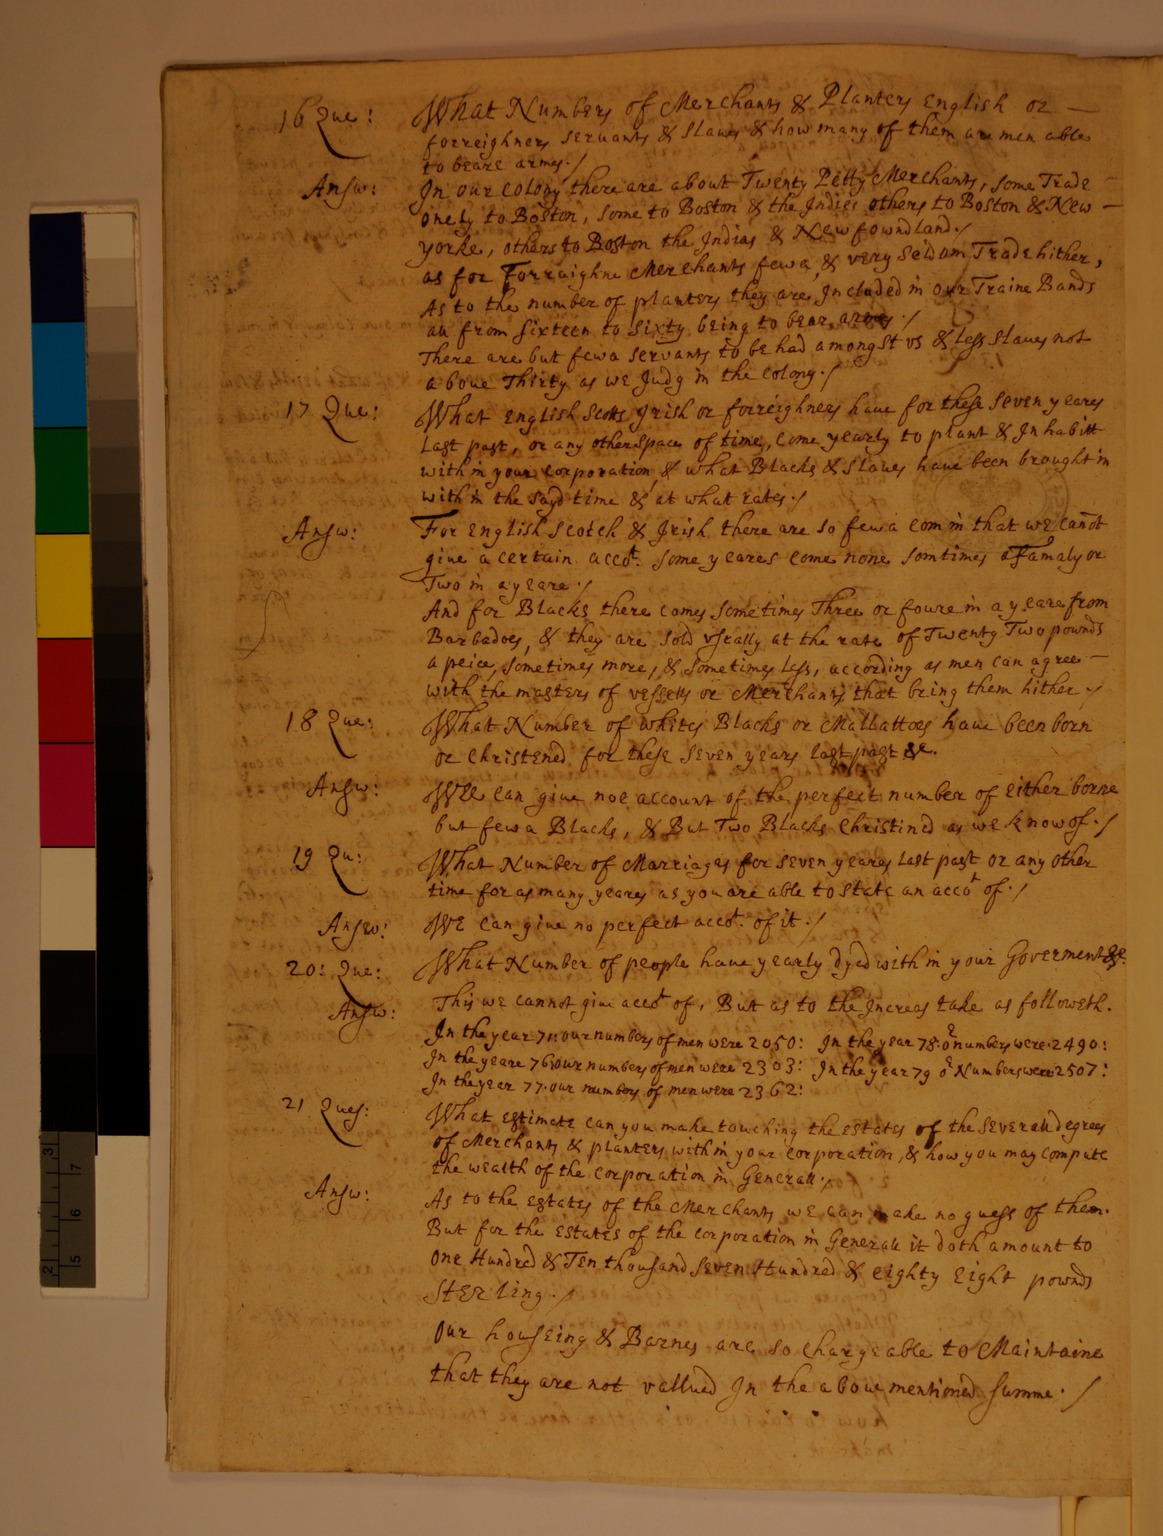 16 Que: What Numbers of Merchants & Planters English or
forreighners servants & slaues & how many of them are men able
to beare armes./
Answ: In our Colony there are about Twenty Petty Merchants, some Trade
onely to Boston, some to Boston & the Indies others to Boston & New
yorke, others to Boston the Indias & Newfowndland./
as for Forraighne Merchants fewa, & very Seldom Trade hither,
As to the number of planters they are Included in our Traine Bands
all from sixteen to sixty being to bear armes./
There are but fewa servants to be had amongst vs & less slaues not
aboue Thirty as we Judg in the Colony./
17 Que: What English Scotts Irish or forreighners haue for these seven yeares
Last past, or any other space of time, come yearly to plant & Inhabitt
with in your corporation, & what Blacks & slaues haue been brought in
with in the sayd time & at what rates./
Answ: For English Scotch & Irish there are so fewa com in that we canot
giue a certain accot. some yeares come none somtimes a Famaly or
Two in a yeare./
And for Blacks there comes sometimes Three or foure in a yeare from
Barbadoes, & they are sold vsually at the rate of Twenty Two pounds
a peice, sometimes more, & sometimes less, according as men can agree
with the masters of vessells or Merchants that bring them hither./
18 Que: What Number of whites Blacks or Mallattoes haue been born
or Christened for these seven years last past &c.
Answ: Wee can giue noe account of the perfect number of Either borne
but fewa Blacks, & But Two Blacks Christined as we know of./
19 Qu: What Number of Marriages for seven yeares Last past or any other
time for as many yeares as you are able to state an accot of./
Answ: We can giue no perfect accot. of it./
20: Que: What Number of people haue yearly dyed with in your Goverment &c.
Answ: This we cannot giue accot of, But as to the Increas take as followeth.
In the year 71: our numbers of men were 2050: In the year 78: or numbers were 2490:
In the yeare 76 our numbers of men were 2303: In the year 79 or Numbers were 2507:
In the year 77 our numbers of men were 2362:
21 Ques: What Estimate can you make touching the estates of the severall degrees
of Merchants & planters with in your corporation, & how you may compute
the wealth of the corporation in Generall./
Answ: As to the Estates of the Merchants we can make no guess of them.
But for the Estates of the corporation in Generall it doth amount to
One Hundred & Ten thousand seven Hundred & eighty Eight pownds
Sterling./
Our houseing & Barnes are so chargeable to Maintaine
that they are not vallued In the aboue mentioned summe./